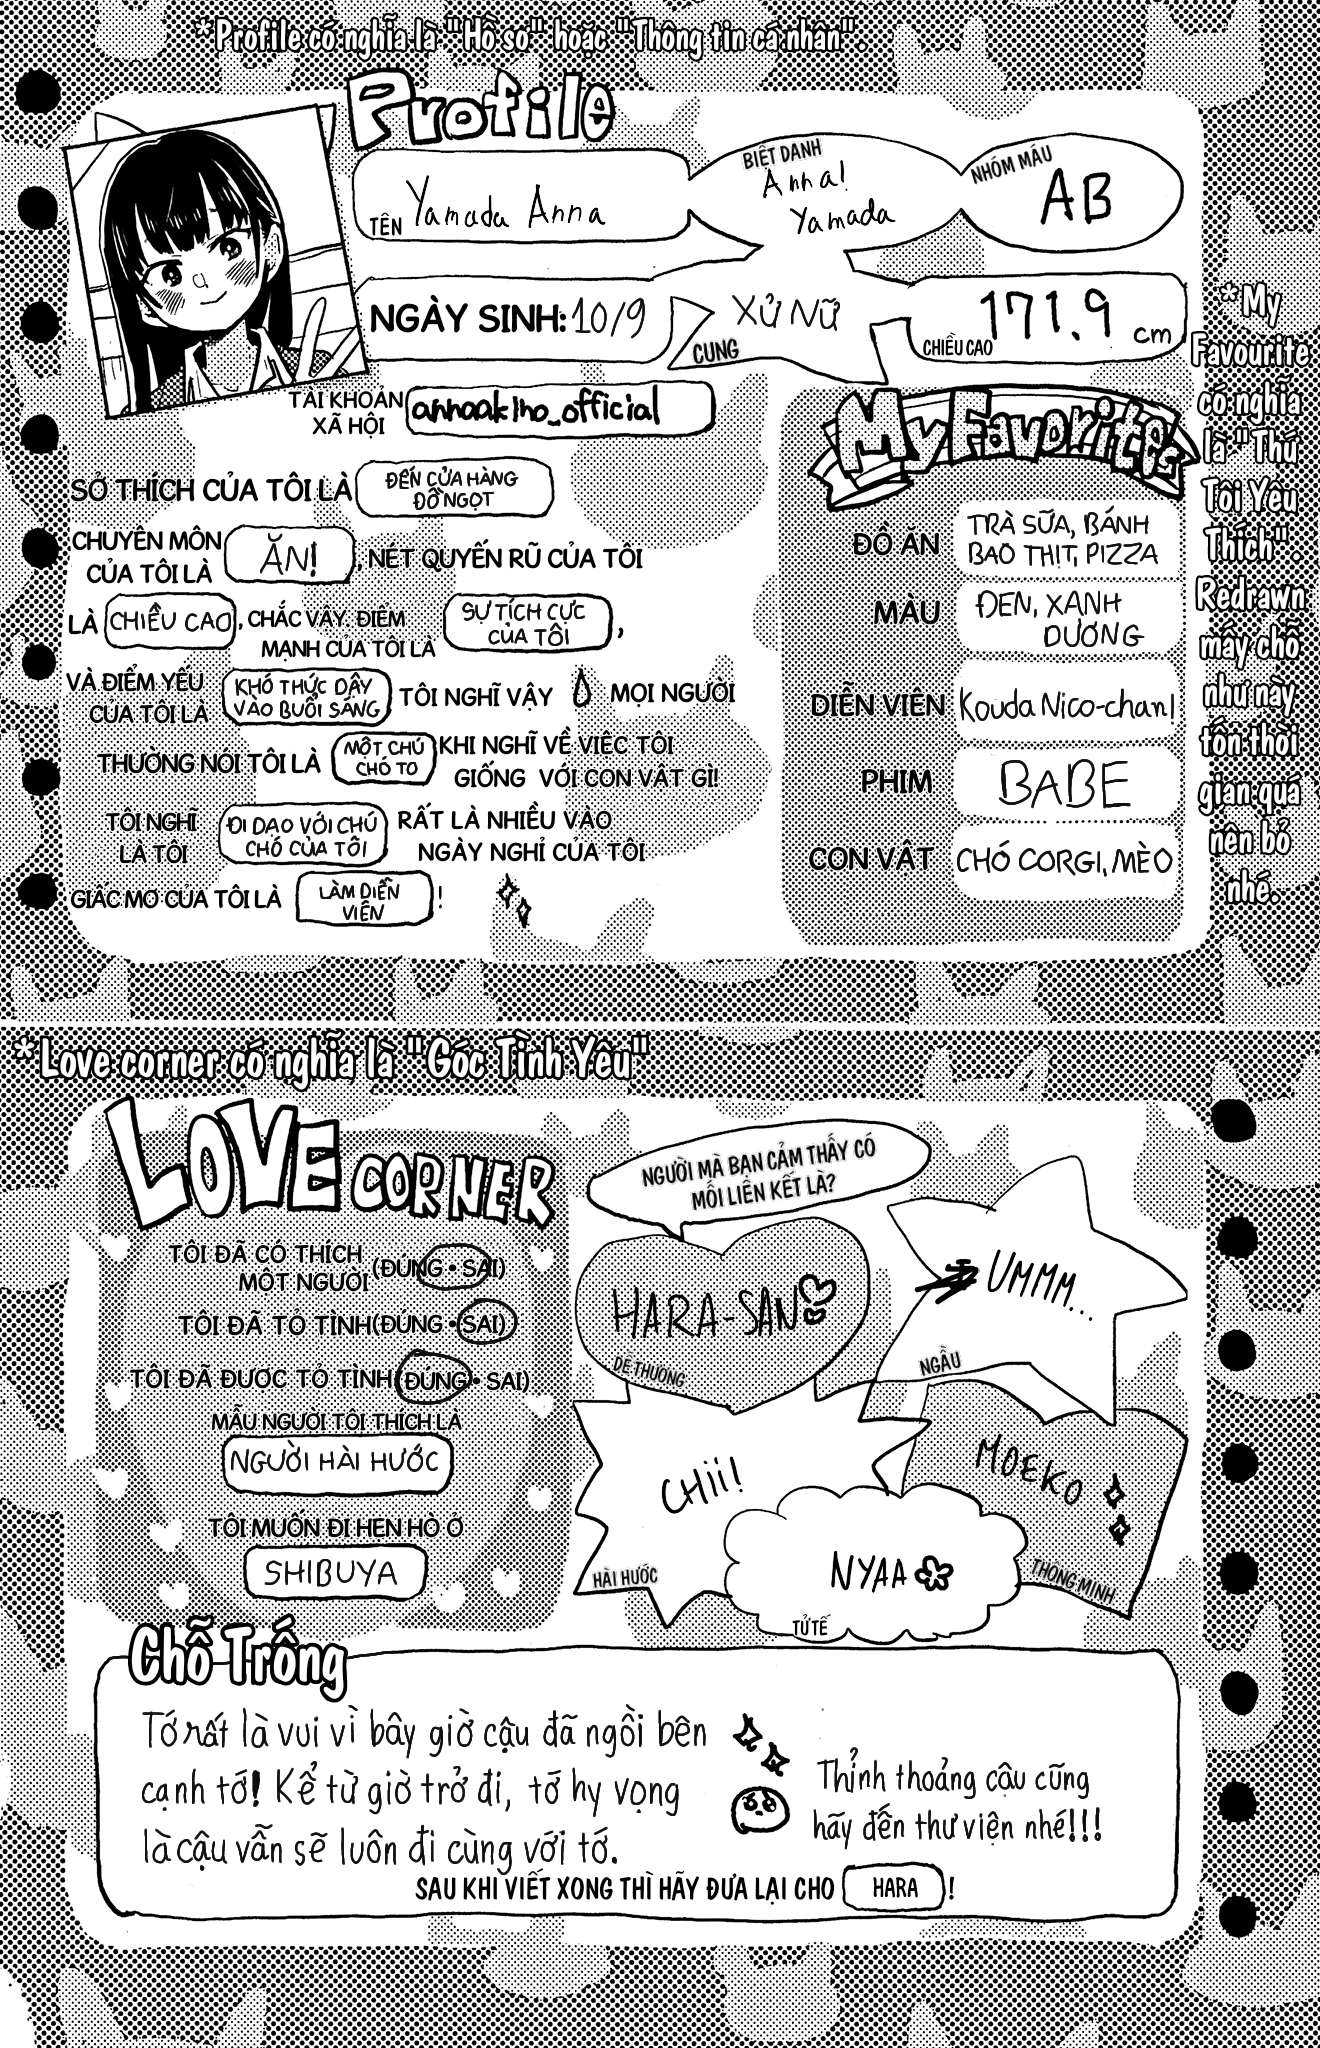 *Profile có nghĩa là "Hồ sơ" hoặc "Thông tin cá nhân".
Profile
TÊN Yamada Anna
BIỆT DANH
Anna!
Yamada
NHÓM MÁU
AB
NGÀY SINH: 10/9
XỬ NỮ
CUNG
171.9 cm
CHIỀU CAO
TÀI KHOẢN
XÃ HỘI
_official
My Favorites
*My
Favourite
có nghĩa
là "Thứ
Tôi Yêu
Thích".
Redrawn
mấy chỗ
như này
tốn thời
gian quá
nên bỏ
nhé.
SỞ THÍCH CỦA TÔI LÀ
ĐẾN CỬA HÀNG
ĐỒ NGỌT
CHUYÊN MÔN
CỦA TÔI LÀ
ĂN!
, NÉT QUYẾN RŨ CỦA TÔI
LÀ CHIỀU CAO, CHẮC VẬY. ĐIỂM
MẠNH CỦA TÔI LÀ
SỰ TÍCH CỰC
CỦA TÔI
,
VÀ ĐIỂM YẾU
CỦA TÔI LÀ
KHÓ THỨC DẬY
VÀO BUỔI SÁNG
TÔI NGHĨ VẬY
MỌI NGƯỜI
THƯỜNG NÓI TÔI LÀ
MỘT CHÚ
CHÓ TO
KHI NGHĨ VỀ VIỆC TÔI
GIỐNG VỚI CON VẬT GÌ!
TÔI NGHĨ
LÀ TÔI
ĐI DẠO VỚI CHÚ
CHÓ CỦA TÔI
RẤT LÀ NHIỀU VÀO
NGÀY NGHỈ CỦA TÔI
GIẤC MƠ CỦA TÔI LÀ
LÀM DIỄN
VIÊN
!
ĐỒ ĂN
TRÀ SỮA, BÁNH
BAO THỊT, PIZZA
MÀU
ĐEN, XANH
DƯƠNG
DIỄN VIÊN
Kouda Nico-chan!
PHIM
BABE
CON VẬT
CHÓ CORGI, MÈO
*Love corner có nghĩa là "Góc Tình Yêu"
LOVE CORNER
TÔI ĐÃ CÓ THÍCH
MỘT NGƯỜI (ĐÚNG • SAI)
TÔI ĐÃ TỎ TÌNH (ĐÚNG • SAI)
TÔI ĐÃ ĐƯỢC TỎ TÌNH (ĐÚNG • SAI)
MẪU NGƯỜI TÔI THÍCH LÀ
NGƯỜI HÀI HƯỚC
TÔI MUỐN ĐI HẸN HÒ Ở
SHIBUYA
NGƯỜI MÀ BẠN CẢM THẤY CÓ
MỐI LIÊN KẾT LÀ?
HARA-SAN
DỄ THƯƠNG
UMMM...
NGẦU
CHII!
HÀI HƯỚC
MOEKO
THÔNG MINH
NYAA
TỬ TẾ
Chỗ Trống
Tớ rất là vui vì bây giờ cậu đã ngồi bên
cạnh tớ! Kể từ giờ trở đi, tớ hy vọng
là cậu vẫn sẽ luôn đi cùng với tớ.
Thỉnh thoảng cậu cũng
hãy đến thư viện nhé!!!
SAU KHI VIẾT XONG THÌ HÃY ĐƯA LẠI CHO HARA !